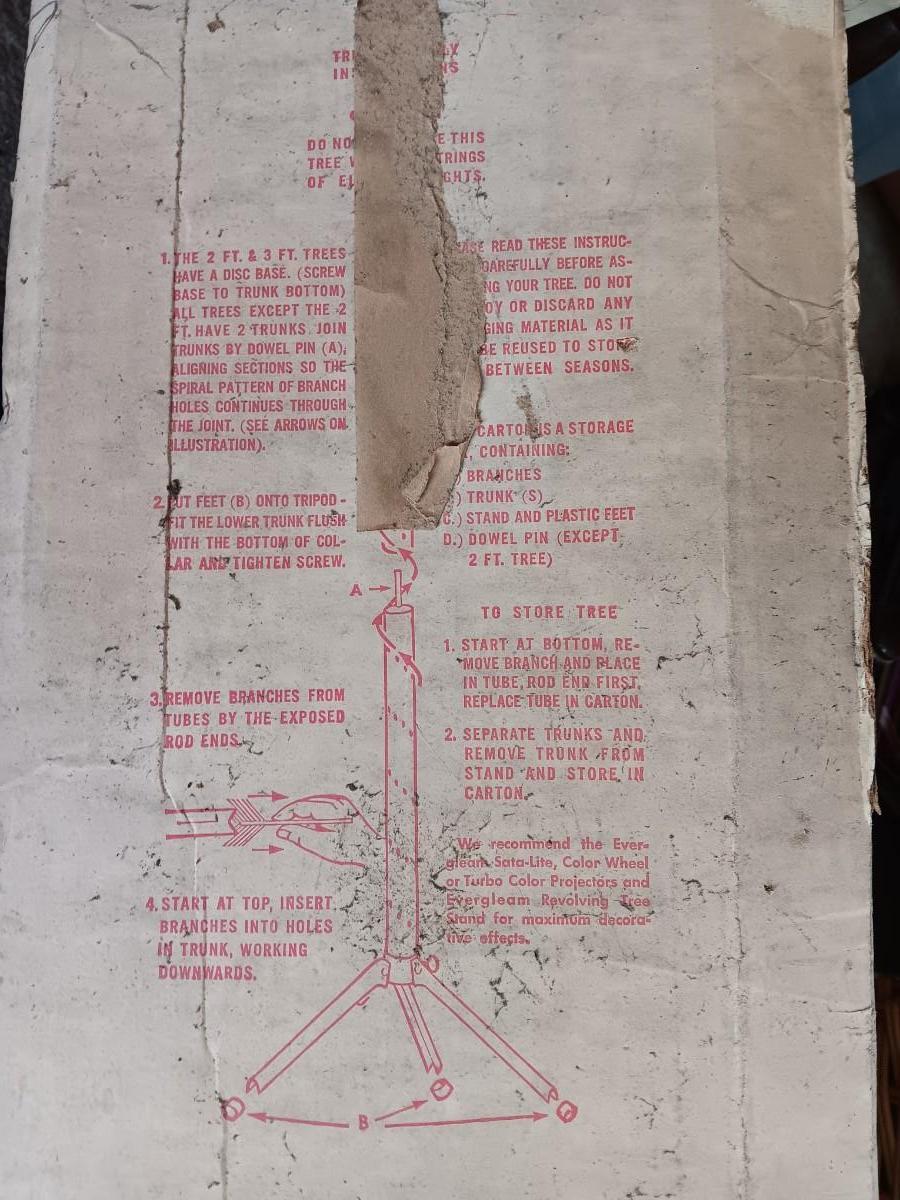 DO NO
E THIS
TREE
TRINGS
OF
GHTS.
1. THE 2 FT. & 3 FT. TREES
HAVE A DISC BASE. (SCREW
BASE TO TRUNK BOTTOM)
ALL TREES EXCEPT THE 2
FT. HAVE 2 TRUNKS. JOIN
TRUNKS BY DOWEL PIN (A),
ALIGNING SECTIONS SO THE
SPIRAL PATTERN OF BRANCH
HOLES CONTINUES THROUGH
THE JOINT. (SEE ARROWS ON
ILLUSTRATION).
2. PUT FEET (B) ONTO TRIPOD-
FIT THE LOWER TRUNK FLUSH
WITH THE BOTTOM OF COL-
LAR AND TIGHTEN SCREW.
3. REMOVE BRANCHES FROM
TUBES BY THE EXPOSED
ROD ENDS.
4. START AT TOP, INSERT
BRANCHES INTO HOLES
IN TRUNK, WORKING
DOWNWARDS.
A
B
ASE READ THESE INSTRUC-
CAREFULLY BEFORE AS-
NG YOUR TREE. DO NOT
OY OR DISCARD ANY
GING MATERIAL AS IT
BE REUSED TO STORE
BETWEEN SEASONS.
CARTON IS A STORAGE
, CONTAINING:
) BRANCHES
) TRUNK (S)
C.) STAND AND PLASTIC FEET
D.) DOWEL PIN (EXCEPT
2 FT. TREE)
TO STORE TREE
1. START AT BOTTOM, RE-
MOVE BRANCH AND PLACE
IN TUBE, ROD END FIRST,
REPLACE TUBE IN CARTON.
2. SEPARATE TRUNKS AND
REMOVE TRUNK FROM
STAND AND STORE IN
CARTON.
We recommend the Ever-
gleam Sata-Lite, Color Wheel
or Turbo Color Projectors and
Evergleam Revolving Tree
Stand for maximum decora-
tive effects.